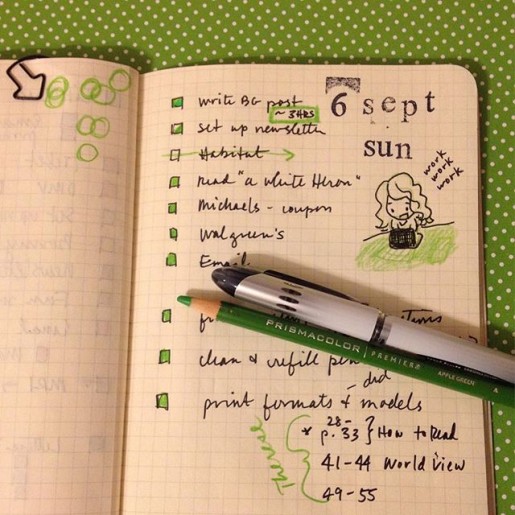 6 sept
sun
work
work
work
write BG post
~ 3HRS
set up newsletter
Habitat
read "a White Heron"
Michaels - coupon
Walgreen's
Email
items
clean & refill pen
- dad
print formats & models
Theroe
* p. 28-33 } How to Read
41-44 World View
49-55
PRISMACOLOR PREMIER
APPLE GREEN